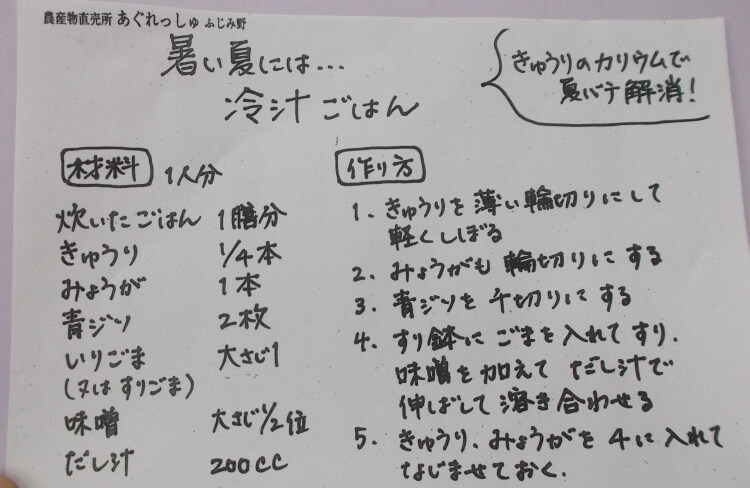 農産物直売所 あぐれっしゅ ふじみ野
暑い夏には...
冷汁ごはん
きゅうりのカリウムで
夏バテ解消!
材料 1人分
炊いたごはん 1膳分
きゅうり 1/4本
みょうが 1本
青ジソ 2枚
いりごま 大さじ1
(又はすりごま)
味噌 大さじ1/2位
だし汁 200cc
作り方
1. きゅうりを薄い輪切りにして
軽くしぼる
2. みょうがも輪切りにする
3. 青ジソを千切りにする
4. すり鉢にごまを入れてすり、
味噌を加えてだし汁で
伸ばして溶き合わせる
5. きゅうり、みょうがを4に入れて
なじませておく.